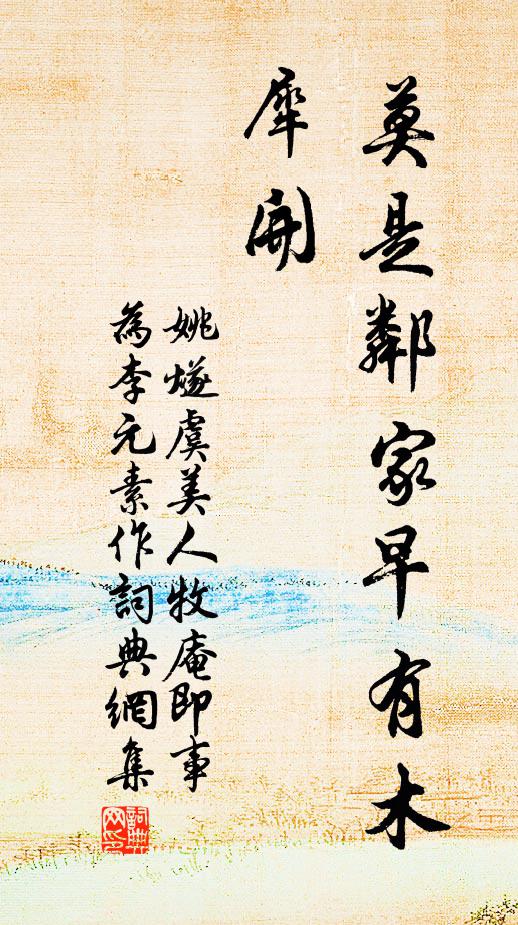 莫是鄰家早有木
犀開
姚燧虞美人牧庵即事
為李元素作詞典網集
詞典
网印